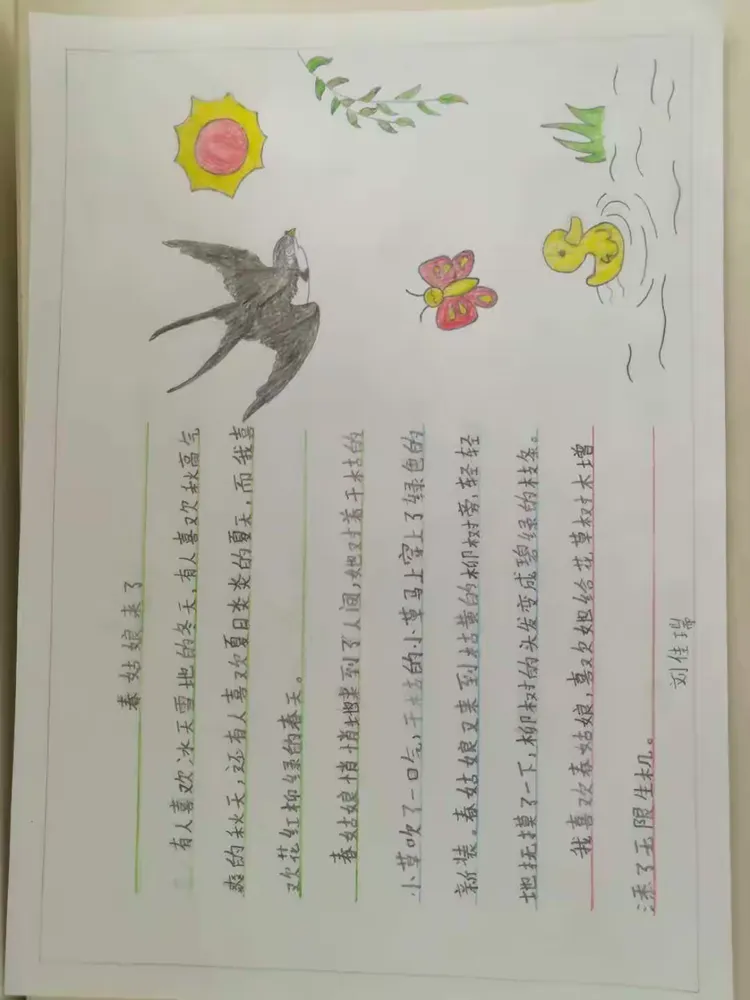 春姑娘来了
有人喜欢冰天雪地的冬天,有人喜欢秋高气
爽的秋天,还有人喜欢夏日炎炎的夏天,而我喜
欢花红柳绿的春天。
春姑娘悄悄地来到了人间,她对着干枯的
小草吹了一口气,干枯的小草马上穿上了绿色的
新装。春姑娘又来到枯黄的柳树旁,轻轻
地抚摸了一下,柳树的头发变成碧绿的枝条。
我喜欢春姑娘,喜欢她给花草树木增
添了无限生机。
刘佳瑞